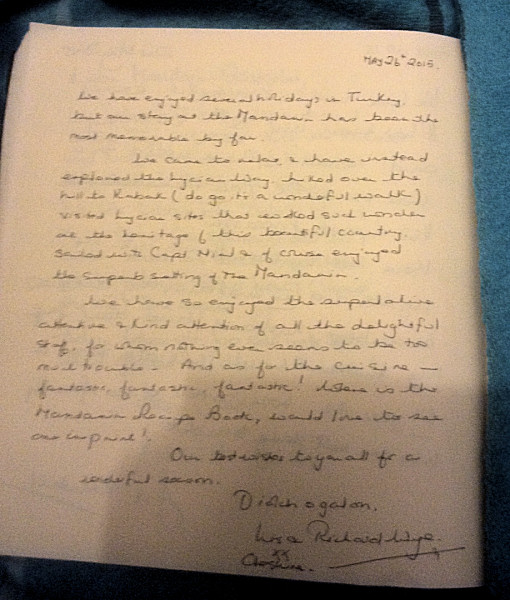 MAY 26th 2015.
We have enjoyed several holidays in Turkey,
but our stay at the Mandarin has been the
most memorable by far.
We came to relax, & have instead
explored the Lycian Way, hiked over the
hill to Kabak (do go, its a wonderful walk)
visited Lycian sites that evoked such wonder
at the heritage of this beautiful country,
sailed with Capt & of course enjoyed
the superb setting of the Mandarin.
We have so enjoyed the superlative
attentive & kind attention of all the delightful
staff, for whom nothing ever seems to be too
much trouble. And as for the cuisine —
fantastic, fantastic, fantastic! Where is the
Mandarin Recipe Book, would love to see
one in print!
Our best wishes to you all for a
wonderful season.
Richard